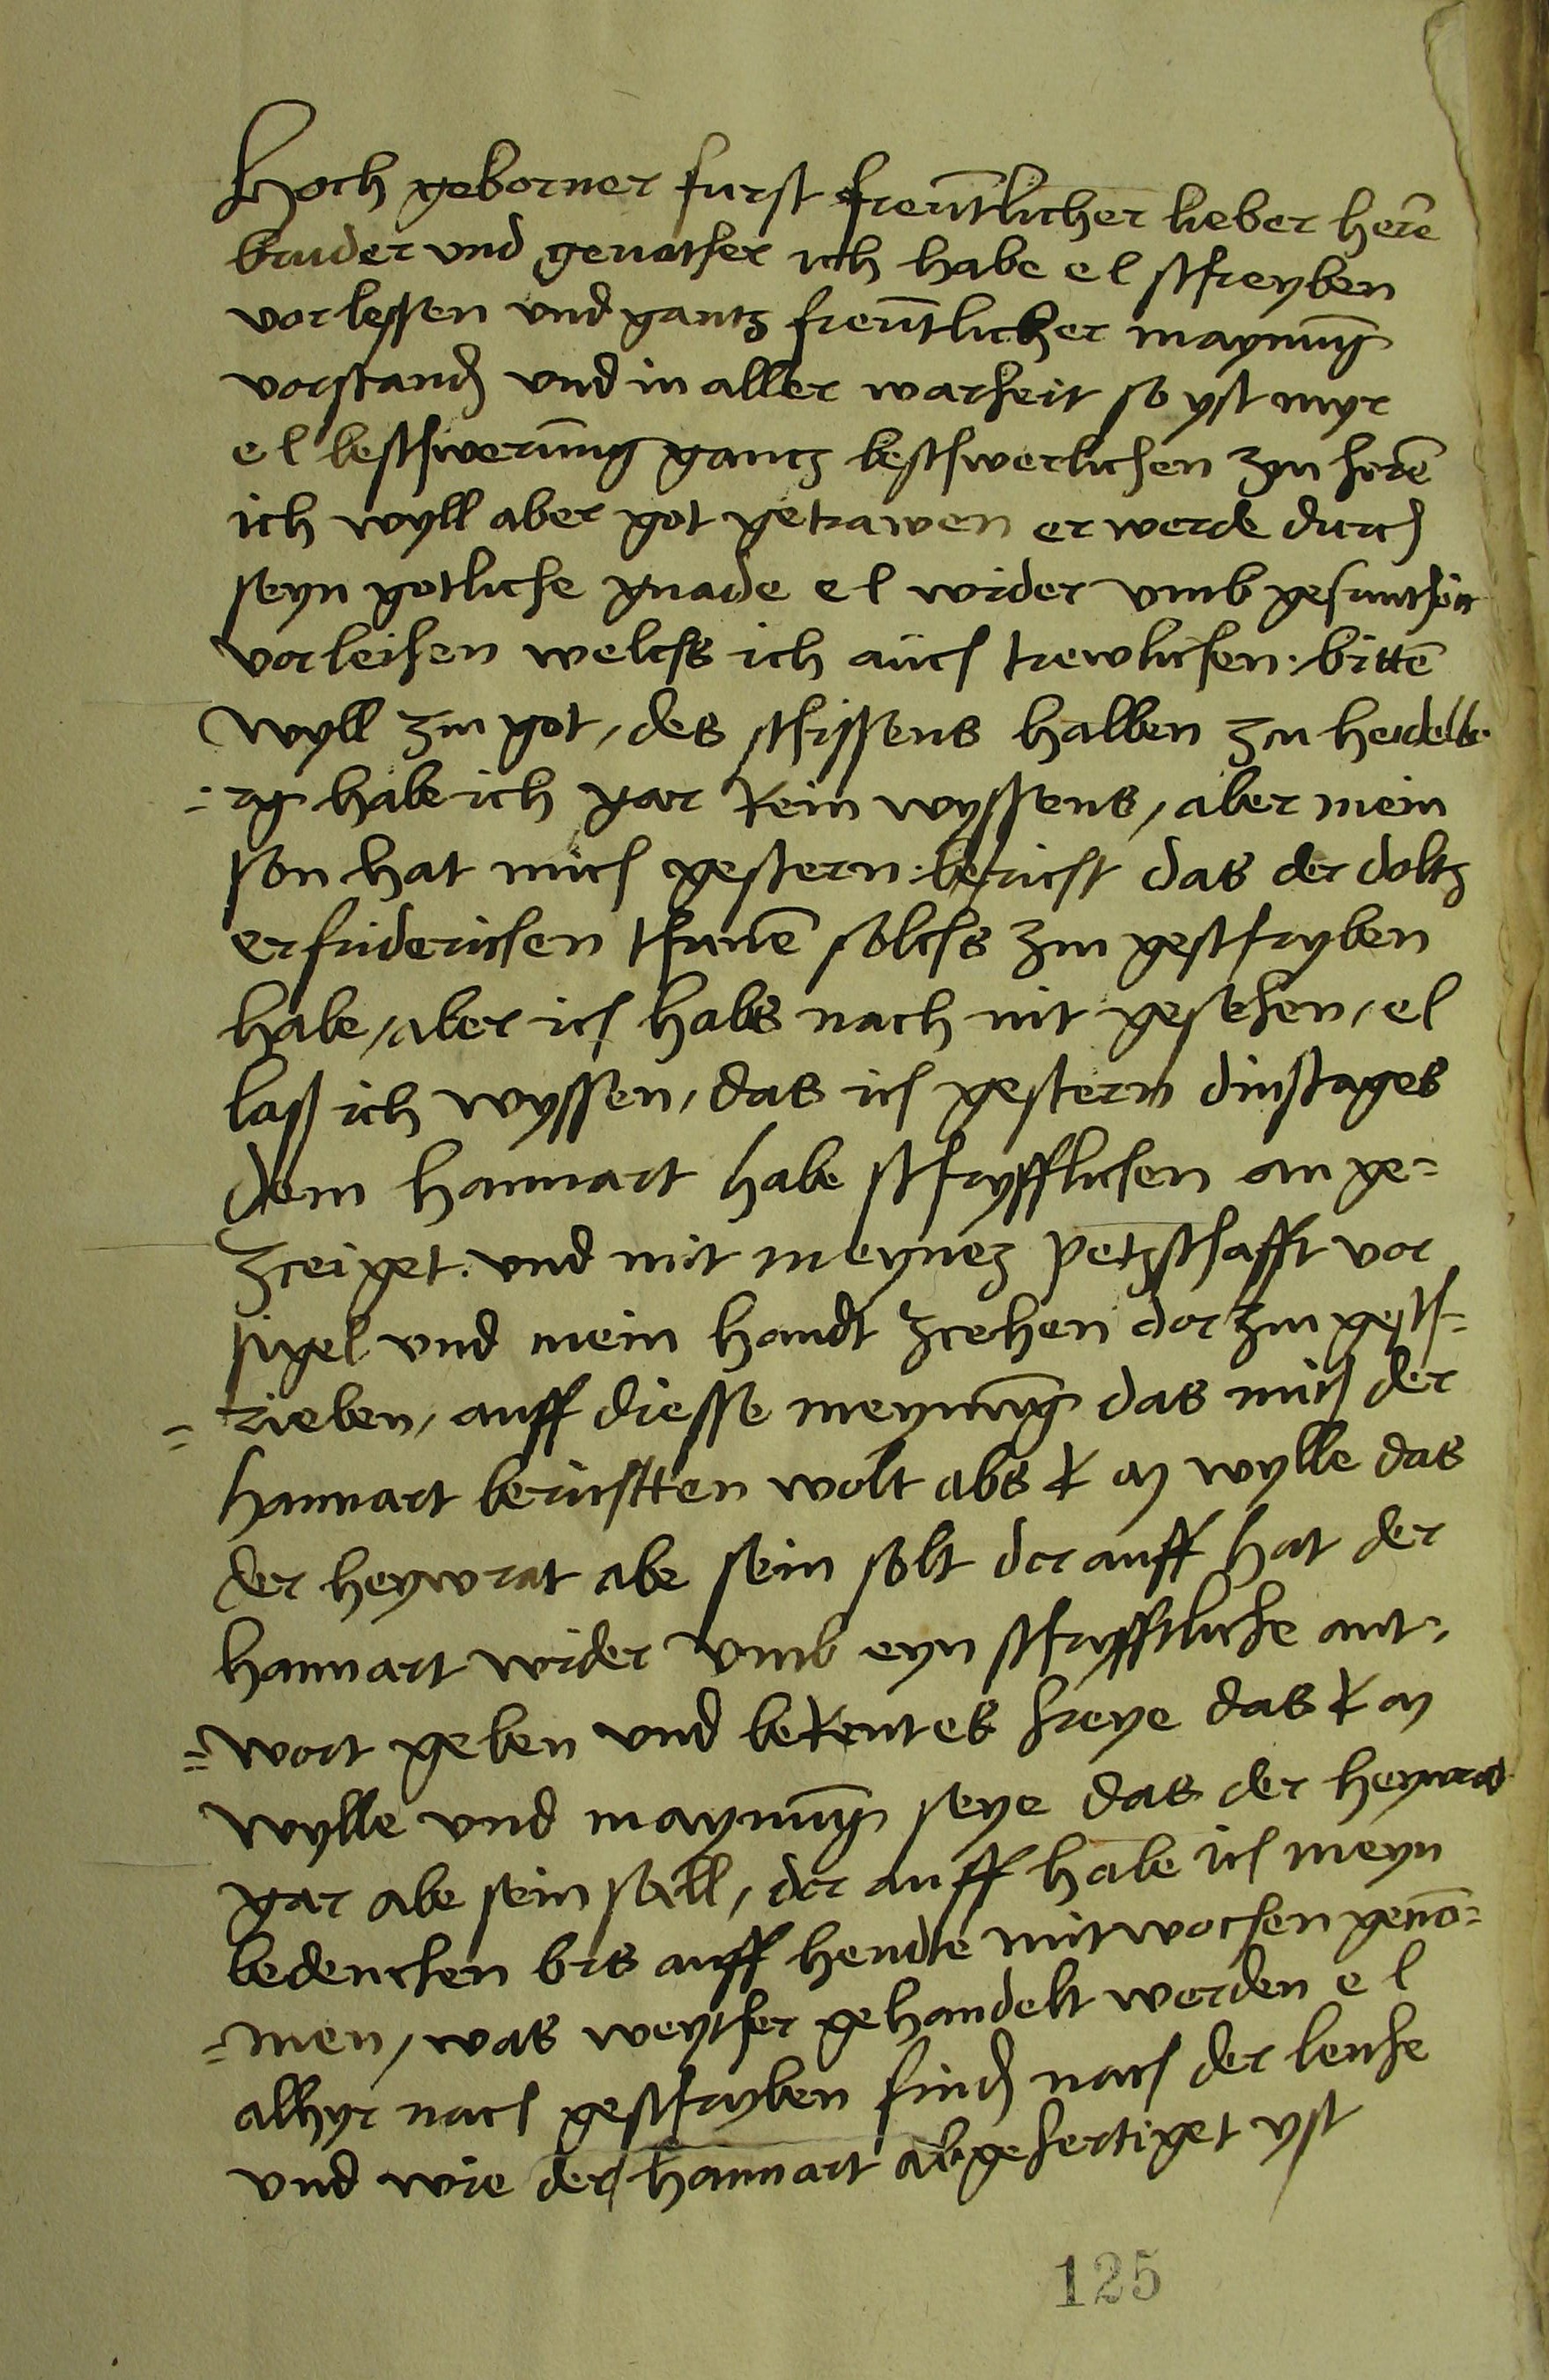 Hoch geborner furst freuntlicher lieber here
bruder und gevatter ich habe e l schreyben
vorlessen und gantz freuntlicher maynung
vorstand und in aller warheit so yst myr
e l beschwerung gantz beschwerlichen zcu horen
ich wyll aber got getrawen er werde durch
seyn gotliche gnade e l wider umb gesuntheit
vorleihen welchs ich auch trewlichen bitten
wyll zcu got, des schissens halben zcu heidelbe
rg habe ich gar kein wyssens, aber mein
son hat mich gestern bericht das der doltz
er friderichen thunen solchs zcu geschryben
habe, aber ich habs nach nit gesehen, e l
lass ich wyssen, das ich gestern dinstages
dem hannart habe schryfftlichen an ge=
zceiget und mit meynez petzschafft vor
sigel und mein handt zcehen dorzcu gesch=
=rieben, auff diesse meynung das mich der
hannart berichtten wolt abs k m wylle das
der heywrat abe sein solt dor auff hat der
hannart wider umb eyn schryfftliche ant=
=wort geben und bekent es freye das k m
wylle und maynung seye das der heywrat
gar abe sein soll, dor auff habe ich meyn
bedencken bis auff heudte mitwochen geno=
=men, was weyther gehandelt werden e l
alhyr nach geschryben find nach der lenge
und wie der hannart abgefertiget yst
125